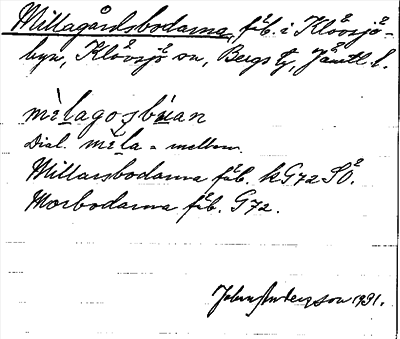 Millagårdsbodarna, fäb. i Klövsjö-
byn, Klövsjö sn, Bergs tg, Jämtl l.
mèlagosbuan
Dial. mèla = mellan.
Millarsbodarna fäb. kG72SÖ.
Morbodarna fäb. G72.
1931.